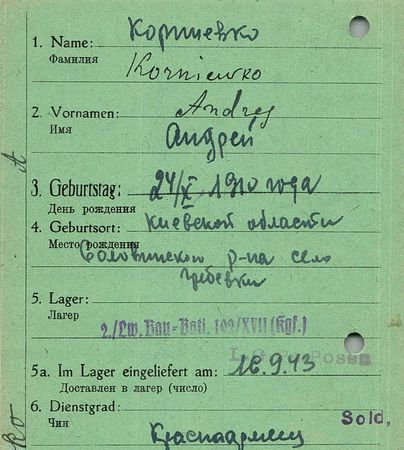 1. Name: Корниевко
Фамилия Korniewko
2. Vornamen: Andrej
Имя Андрей
3. Geburtstag: 24/X 1910 года
День рождения
4. Geburtsort: Киевской области
Место рождения района село
Гребенки
5. Lager:
Лагер 2./Lw. Bau-Batl. 102/XVII (Kgf.)
Posen
5a. Im Lager eingeliefert am: 16.9.43
Доставлен в лагер (число)
6. Dienstgrad: Sold.
Чин Красноармеец